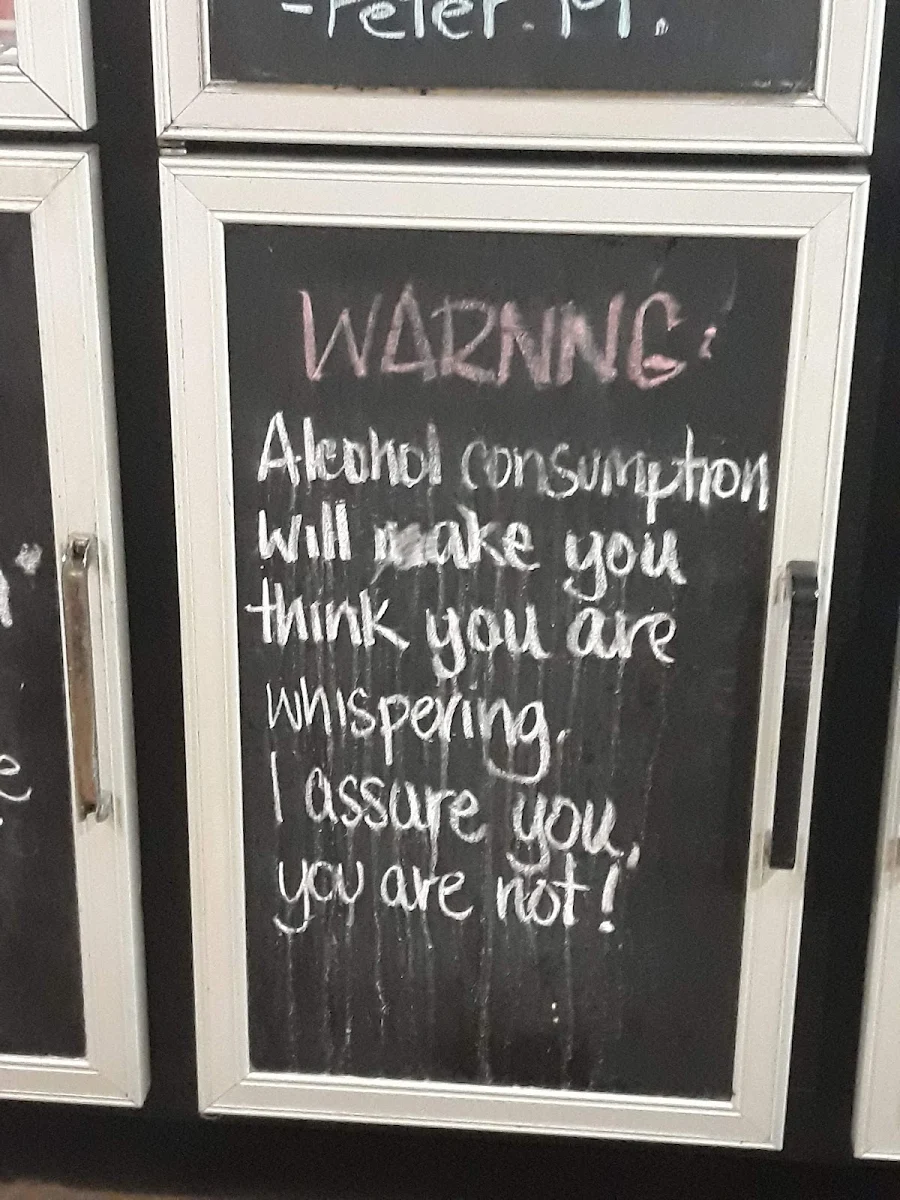 -Peter. M.
WARNNG:
Alcohol consumption
will make you
think you are
whispering.
I assure you,
you are not!